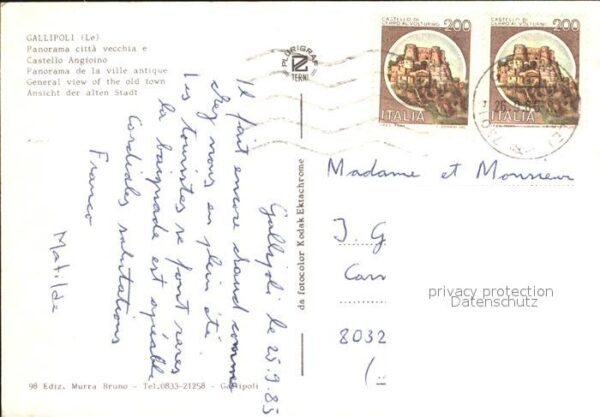 GALLIPOLI (Le)
Panorama città vecchia e
Castello Angioino
Panorama de la ville antique
General view of the old town
Ansicht der alten Stadt
PLURIGRAF
TERNI
CASTELLO DI
CERRO AL VOLTURNO
200
ITALIA
CASTELLO DI
CERRO AL VOLTURNO
200
ITALIA
Gallipoli le 25.9.85
Il fait encore chaud comme
chez nous en plein été
Les touristes se font rares
la baignade est agréable
Cordiales salutations
Franco
Matilde
da fotocolor Kodak Ektachrome
Madame et Monsieur
J. G
Carr
8032
privacy protection
Datenschutz
98 Ediz. Murra Bruno - Tel.0833-21258 - Gallipoli